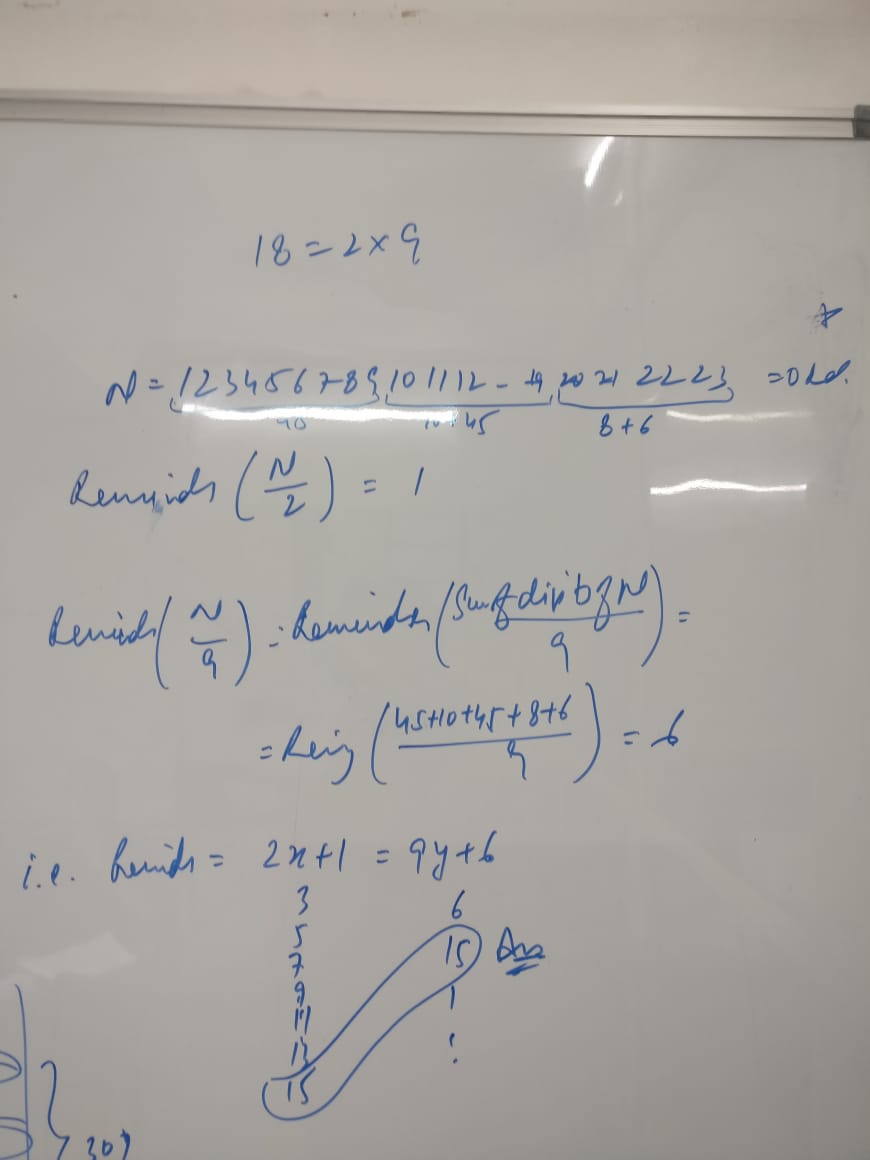 18 = 2 x 9
N = 123456789 101112 - 19 20 21 2223 = odd.
45 10+45 8+6
Remainder (N/2) = 1
Remainder (N/9) = Remainder (Sum of digits of N/9) =
= Rem (45+10+45+8+6/9) = 6
i.e. Remainder = 2x+1 = 9y+6
3 6
5 15 Ans
7
9
11
13
15
30